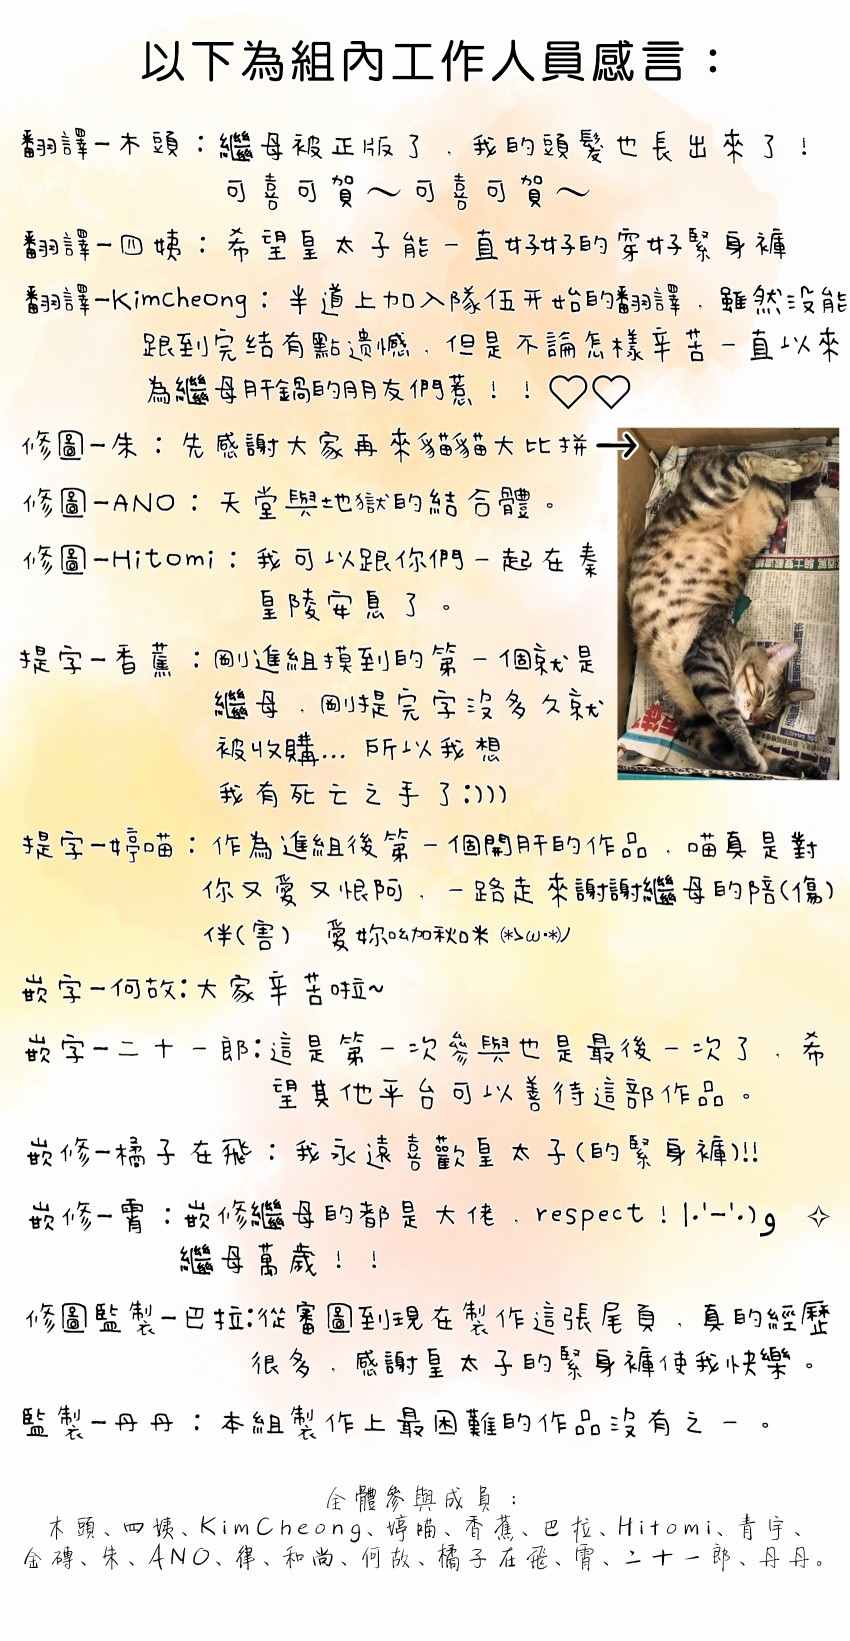 以下為組內工作人員感言：
翻譯－木頭：繼母被正版了．我的頭髮也長出來了！
可喜可賀～可喜可賀～
翻譯－四姨：希望皇太子能一直好好的穿好緊身褲
翻譯－Kimcheong：半道上加入隊伍開始的翻譯．雖然沒能
跟到完結有點遺憾．但是不論怎樣辛苦一直以來
為繼母肝鍋的朋友們惹！！♡♡
修圖－朱：先感謝大家再來貓貓大比拼→
修圖－ANO：天堂與地獄的結合體。
修圖－Hitomi：我可以跟你們一起在秦
皇陵安息了。
提字－香蕉：剛進組摸到的第一個就是
繼母．剛提完字沒多久就
被收購... 所以我想
我有死亡之手了:)))
提字－婷喵：作為進組後第一個開肝的作品．喵真是對
你又愛又恨阿．一路走來謝謝繼母的陪(傷)
伴(害) 愛妳呦加秋咪 (*>ω·*)ﾉ
嵌字－何故：大家辛苦啦~
嵌字－二十一郎：這是第一次參與也是最後一次了．希
望其他平台可以善待這部作品。
嵌修－橘子在飛：我永遠喜歡皇太子(的緊身褲)!!
嵌修－霄：嵌修繼母的都是大佬．respect！|·'-'·)و ✧
繼母萬歲！！
修圖監製－巴拉：從審圖到現在製作這張尾頁．真的經歷
很多．感謝皇太子的緊身褲使我快樂。
監製－丹丹：本組製作上最困難的作品沒有之一。
全體參與成員：
木頭、四姨、KimCheong、婷喵、香蕉、巴拉、Hitomi、青宇、
金磚、朱、ANO、律、和尚、何故、橘子在飛、霄、二十一郎、丹丹。